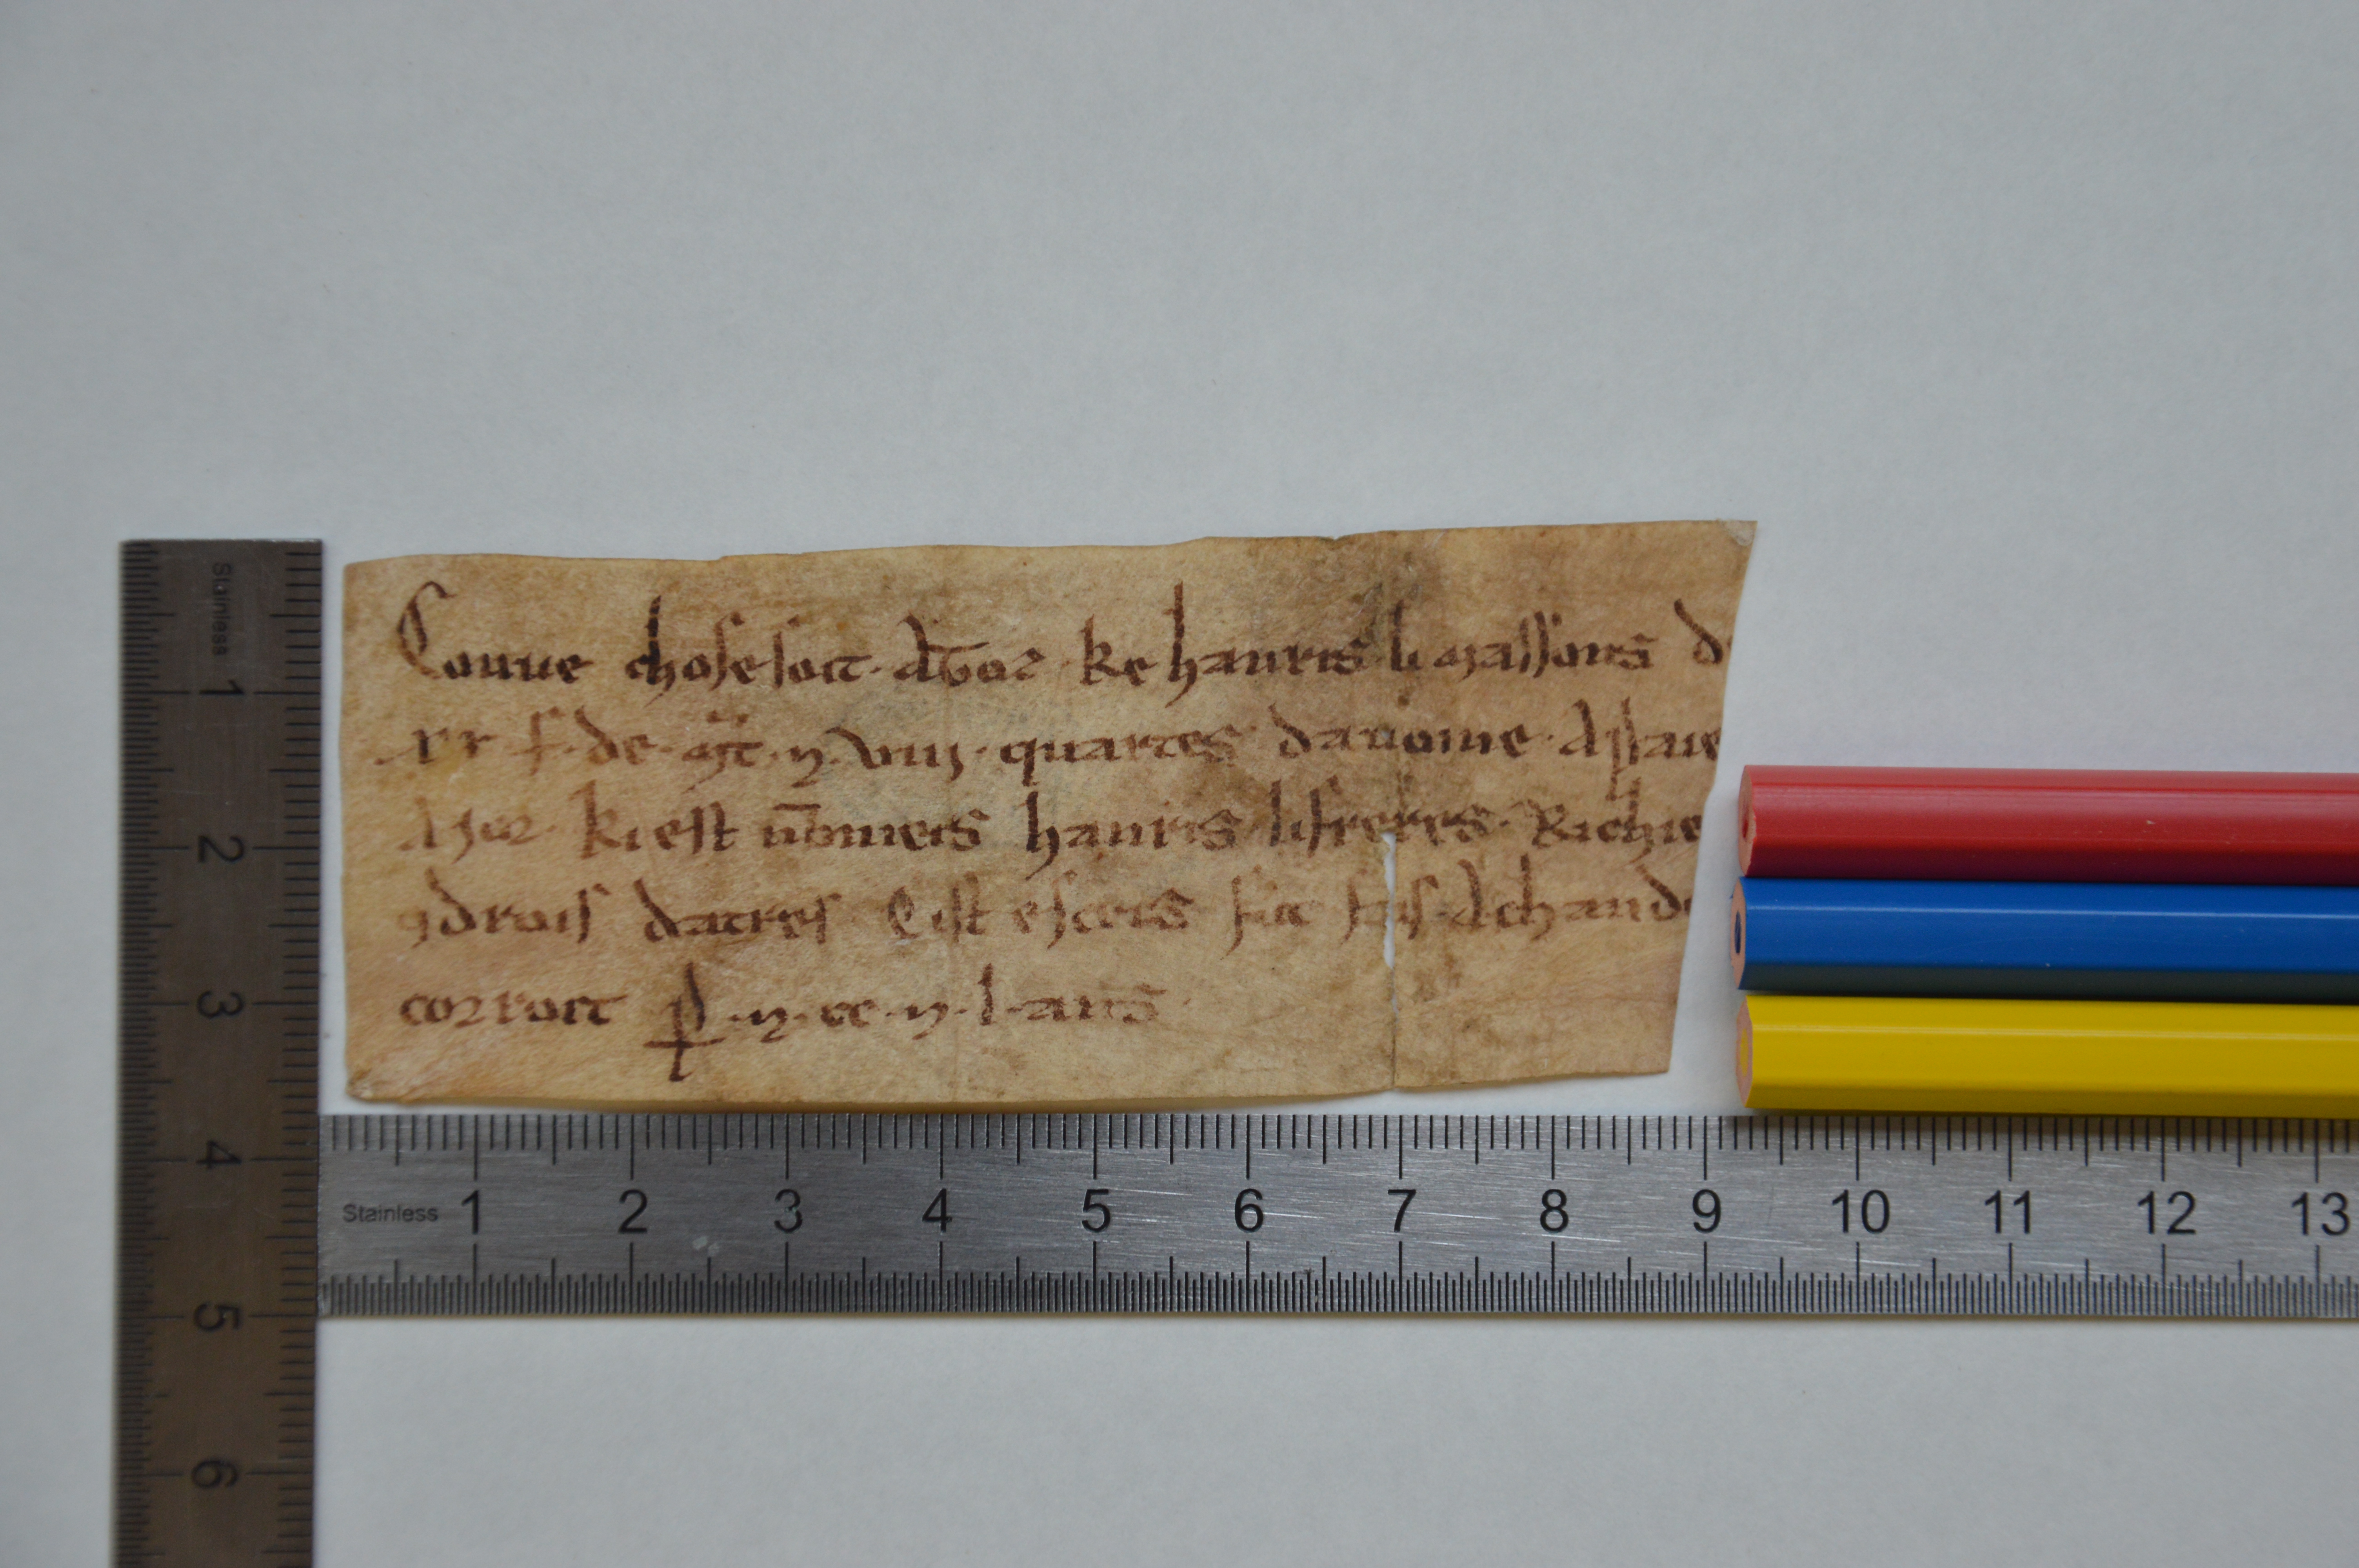 Conue chose soit · a toz · ke hanris · li massons d
xx s · de · mt · ⁊ · viiı · quartes dauoine · A paie
A ior · ki est nomeis hanris · li freres · Richie
⁊ drois datres Cist escris fut fais · A chand
corroit p · m · cc · ⁊ · l · ans ·
Stainless 1 2 3 4 5 6
Stainless 1 2 3 4 5 6 7 8 9 10 11 12 13